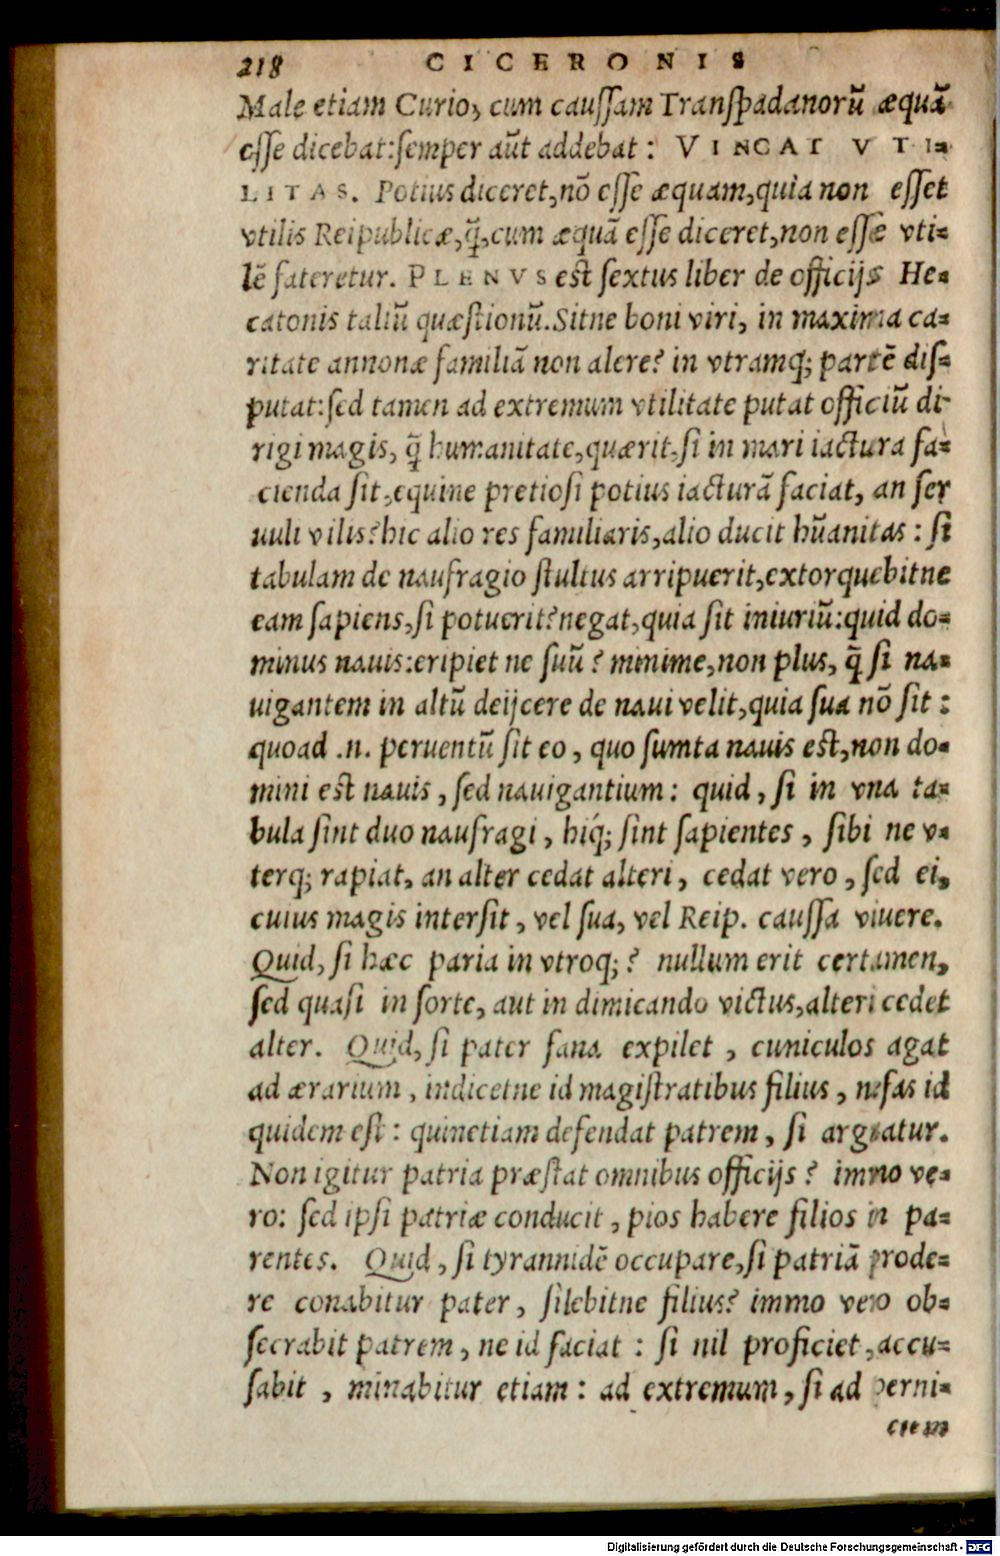 218 CICERONIS
Male etiam Curio, cum caussam Transpadanorũ æquã
esse dicebat: semper aũt addebat : VINCAT VTI-
LITAS. Potius diceret, nõ esse æquam, quia non esset
vtilis Reipublicæ, q̃, cum æquã esse diceret, non esse vti-
lẽ fateretur. PLENVS est sextus liber de officijs He-
catonis taliũ quæstionũ. Sitne boni viri, in maxima ca-
ritate annonæ familiã non alere? in vtramq; partẽ dis-
putat: sed tamen ad extremum vtilitate putat officiũ di-
rigi magis, q̃ humanitate, quærit, si in mari iactura fa-
cienda sit, equine pretiosi potius iacturã faciat, an ser
uuli vilis? hic alio res familiaris, alio ducit hũanitas : si
tabulam de naufragio stultus arripuerit, extorquebitne
eam sapiens, si potuerit? negat, quia sit iniuriũ: quid do-
minus nauis: eripiet ne suũ ? minime, non plus, q̃ si na-
uigantem in altũ deijcere de naui velit, quia sua nõ sit :
quoad .n. peruentũ sit eo, quo sumta nauis est, non do-
mini est nauis, sed nauigantium : quid, si in vna ta-
bula sint duo naufragi, hiq́; sint sapientes, sibi ne v-
terq; rapiat, an alter cedat alteri, cedat vero, sed ei,
cuius magis intersit, vel sua, vel Reip. caussa viuere.
Quid, si hæc paria in vtroq; ? nullum erit certamen,
sed quasi in sorte, aut in dimicando victus, alteri cedet
alter. Quid, si pater fana expilet, cuniculos agat
ad ærarium, indicetne id magistratibus filius, nefas id
quidem est : quinetiam defendat patrem, si arguatur.
Non igitur patria præstat omnibus officijs ? immo ve-
ro: sed ipsi patriæ conducit, pios habere filios in pa-
rentes. Quid, si tyrannidẽ occupare, si patriã prode-
re conabitur pater, silebitne filius? immo vero ob-
secrabit patrem, ne id faciat : si nil proficiet, accu-
sabit, minabitur etiam : ad extremum, si ad perni-
ciem
Digitalisierung gefördert durch die Deutsche Forschungsgemeinschaft - DFG